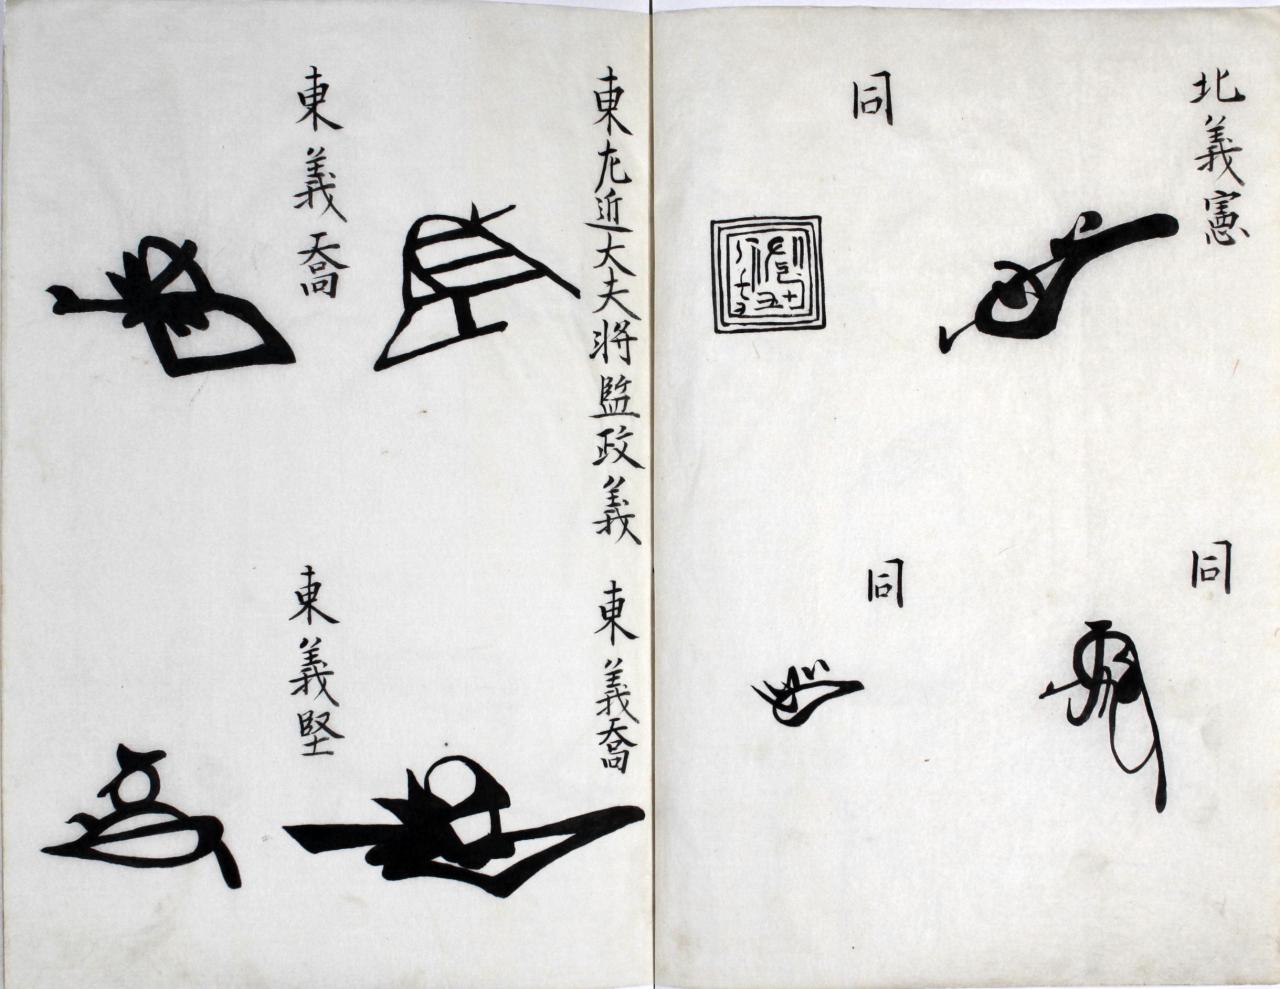 北義憲
同
同
同
東左近大夫將監政義
東義喬
東義喬
東義堅